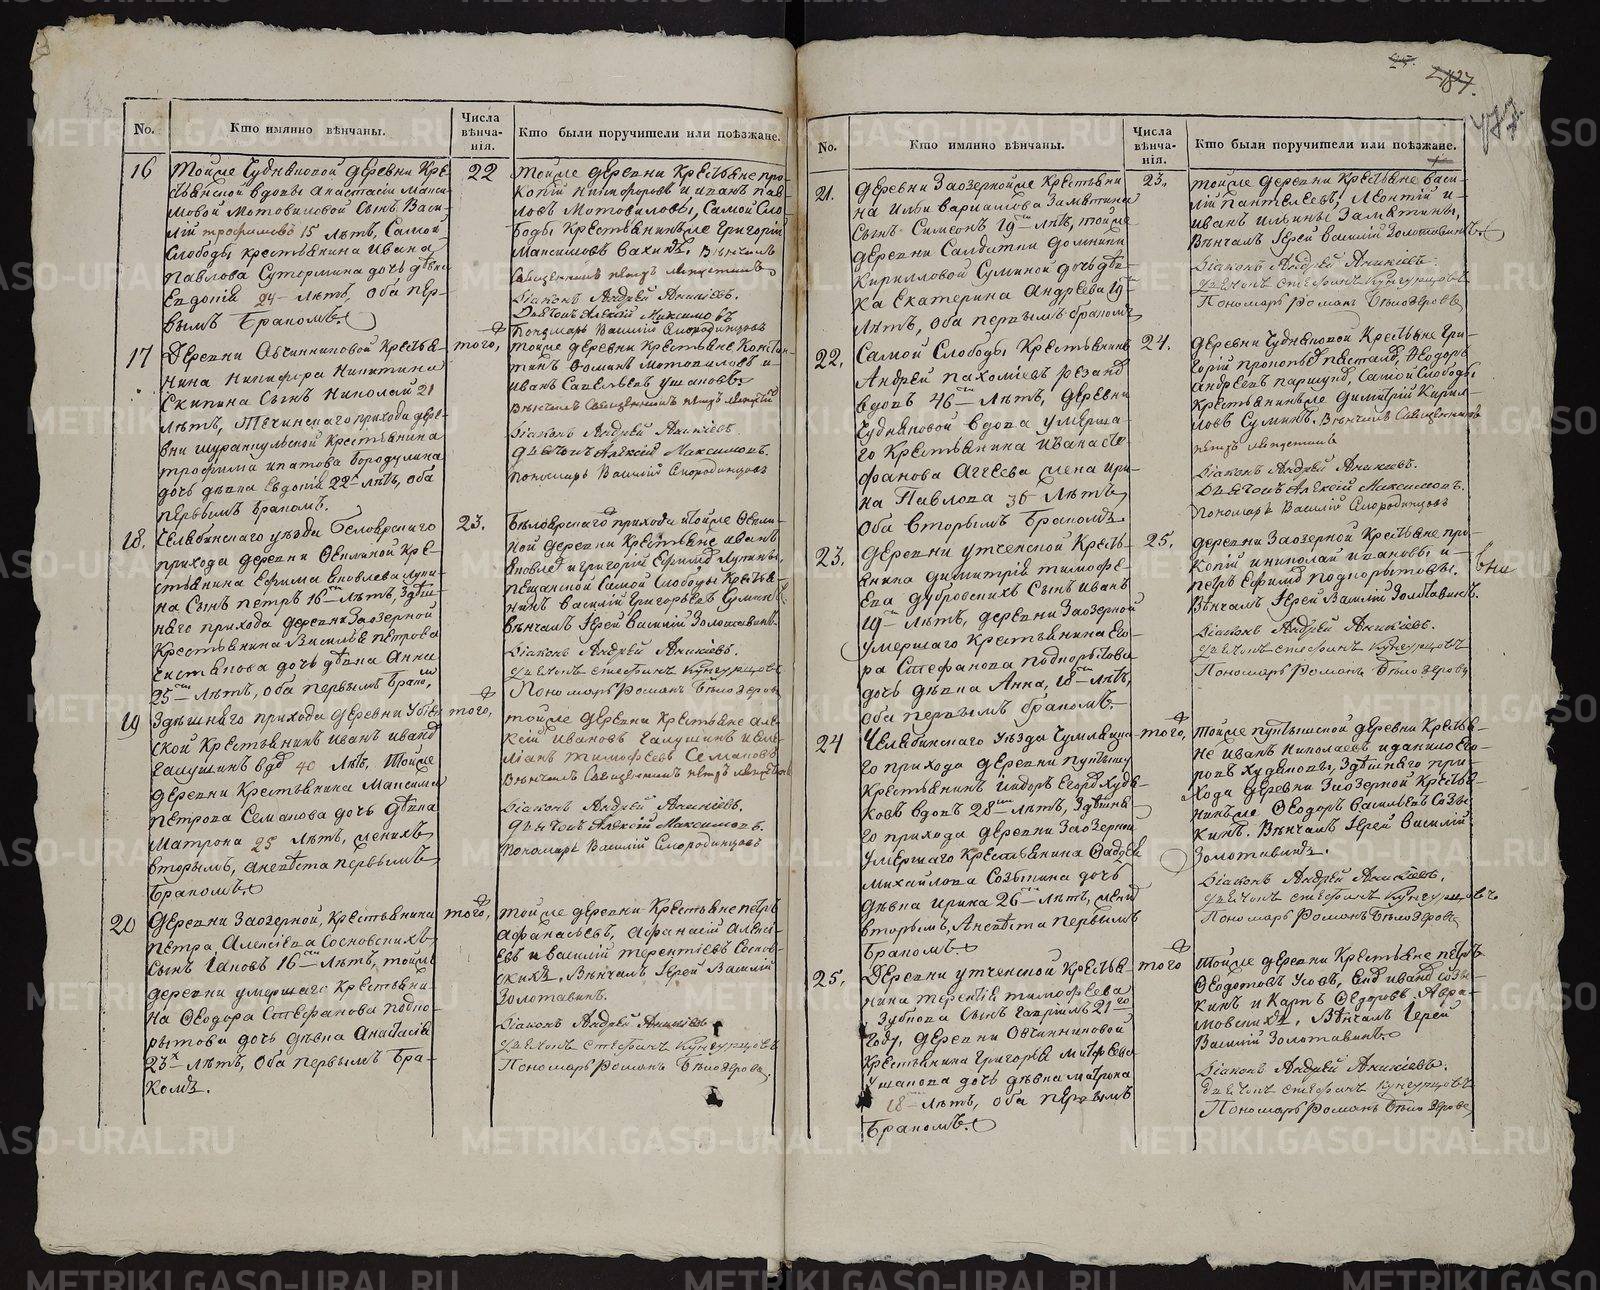 No.
Кто имянно вѣнчаны.
Числа
вѣнча-
нія.
Кто были поручители или поѣзжане.
16
тойже Чудняковой деревни Кре-
стьянской вдовы Анастасіи Макси-
мовой Мотовиловой Сынъ Васи-
лій трофимовъ 15 лѣтъ, Самой
Слободы крестьянина Ивана
Павлова Сутормина дочь дѣвка
Евдокія 24 лѣтъ, оба пер-
вымъ бракомъ.
22
тойже деревни Крестьяне про-
копій Никифоровъ и иванъ пав-
ловъ Мотовиловы, Самой Сло-
боды Крестьянинъже Григорій
Максимовъ Вахинъ. Вѣнчалъ
Священникъ петръ
Діаконъ Андрей Аникіевъ.
Дьячокъ Алексій Максимовъ
Пономарь Василій Смородинцовъ
17
Деревни Овчинниковой Крестья-
нина Никифора Никитина
Скипина Сынъ Николай 21
лѣтъ, Теченскаго прихода дере-
вни Шуранкульской Крестьянина
трофима ипатова Бородулина
дочь дѣвка Евдокія 22 лѣтъ, оба
первымъ бракомъ.
того,
тойже деревни Крестьяне Констан-
тинъ Фоминъ Мотовиловъ и
иванъ Савельевъ Ушаковъ.
Вѣнчалъ Священникъ петръ
Діаконъ Андрей Аникіевъ
Дьячокъ Алексій Максимовъ.
Пономарь Василій Смородинцовъ
18.
Челябинскаго уѣзда Беловрскаго
прихода деревни Ѳеклиной Кре-
стьянина Ефима Яковлева Лупи-
на Сынъ петръ 16 лѣтъ, Здѣш-
няго прихода деревни Заозерной
Крестьянина Василья петрова
Чистякова дочь дѣвка Анна
25 лѣтъ, оба первымъ брако.
23.
Бѣловрскаго прихода тойже Ѳекли-
ной деревни Крестьяне иванъ
Яковлевъ и григорій Ефимовъ Лупины,
Пещанской Самой Слободы Крестья-
нинъ Василій Григорьевъ Суминъ.
Вѣнчалъ Іерей Василій Золотавинъ.
Діаконъ Андрей Аникіевъ.
Дьячокъ стефанъ Кунгурцовъ
Пономарь Романъ Бѣлозеровъ
19
Здѣшняго прихода деревни
ской Крестьянинъ иванъ ивановъ
Галушинъ вдовъ 40 лѣтъ, тойже
деревни Крестьянина Максима
петрова Семакова дочь дѣвка
Матрона 25 лѣтъ, женихъ
вторымъ, а невѣста первымъ
бракомъ.
того,
тойже деревни Крестьяне але-
ксій ивановъ Галушинъ и еме-
ліанъ тимофеевъ Семаковъ
Вѣнчалъ Священникъ петръ
Діаконъ Андрей Аникіевъ.
Дьячокъ Алексій Максимовъ.
Пономарь Василій Смородинцовъ
20
деревни Заозерной, Крестьянина
петра Алексіева Сосновскихъ
Сынъ Іаковъ 16 лѣтъ, тойже
деревни умершаго Крестьяни-
на Ѳеодора Стефанова подко-
рытова дочь дѣвка Анастасія
23 лѣтъ, оба первымъ бра-
комъ.
того,
тойже деревни Крестьяне петръ
Афанасьевъ, Афанасій Алексі-
евъ и василій терентіевъ Соснов-
скихъ. Вѣнчалъ Іерей Василій
Золотавинъ.
Діаконъ Андрей Аникіевъ
Дьячокъ стефанъ Кунгурцовъ
Пономарь Романъ Бѣлозеровъ.
No.
Кто имянно вѣнчаны.
Числа
вѣнча-
нія.
Кто были поручители или поѣзжане.
21.
деревни Заозернойже Крестьяни-
на Ильи Варламова Замятина
Сынъ Симеонъ 19 лѣтъ, тойже
деревни Салдатки Домники
Кирилловой Суминой дочь дѣв-
ка Екатерина Андреева 19
лѣтъ, оба первымъ бракомъ
23.
тойже деревни Крестьяне Васи-
лій пантелеевъ, Леонтій и
иванъ ильины Замятины,
Вѣнчалъ Іерей Василій Золотавинъ.
Діаконъ Андрей Аникіевъ.
Дьячокъ стефанъ Кунгурцовъ
Пономарь Романъ Бѣлозеровъ
22.
Самой Слободы Крестьянинъ
Андрей пахоміевъ
вдовъ 46 лѣтъ, деревни
Чудняковой вдова умерша-
го Крестьянина ивана сте-
фанова Агеева жена ири-
на Павлова 36 лѣтъ
оба вторымъ бракомъ
24.
деревни Чудняковой Крестьяне гри-
горій, Ѳеодоръ
Андреевъ, Самой Слободы
Крестьянинъже Димитрій Кирил-
ловъ Суминъ. Вѣнчалъ Священникъ
петръ
Діаконъ Андрей Аникіевъ.
Дьячокъ Алексій Максимовъ.
Пономарь Василій Смородинцовъ
23.
деревни утченской Кресть-
янина Димитрія тимофе-
ева дубровскихъ Сынъ иванъ
19 лѣтъ, деревни Заозерной
умершаго Крестьянина Его-
ра Стефанова подкорытова
дочь дѣвка Анна, 18 лѣтъ,
оба первымъ бракомъ.
25.
деревни Заозерной Крестьяне про-
копій и николай ивановы и
петръ Ефимовъ подкорытовы.
Вѣнчалъ Іерей Василій Золотавинъ.
Діаконъ Андрей Аникіевъ.
Дьячокъ стефанъ Кунгурцовъ
Пономарь Романъ Бѣлозеровъ
24
Челябинскаго уѣзда Чумляцка-
го прихода деревни
Крестьянинъ Ѳедоръ Егоровъ Худя-
ковъ вдовъ 28 лѣтъ, Здѣшня-
го прихода деревни Заозерной
умершаго Крестьянина Ѳадѣя
михайлова Созыкина дочь
дѣвка ирина 26 лѣтъ, женихъ
вторымъ, а невѣста первымъ
бракомъ.
того,
тойже деревни Крестья-
не иванъ николаевъ и данило Его-
ровъ худяковы, Здѣшняго при-
хода деревни Заозерной Крестья-
нинъже Ѳеодоръ Васильевъ Созы-
кинъ. Вѣнчалъ Іерей Василій
Золотавинъ.
Діаконъ Андрей Аникіевъ.
Дьячокъ стефанъ Кунгурцовъ
Пономарь Романъ Бѣлозеровъ
25.
деревни утченской Крестья-
нина терентія тимофеева
Зубкова Сынъ Гавріилъ 21 го
году, деревни Овчинниковой
Крестьянина Григорья матфеева
Ушакова дочь дѣвка матрона
18 лѣтъ, оба первымъ
бракомъ.
того
тойже деревни Крестьяне петръ
Ѳеодотовъ Усовъ, ивановъ Созы-
кинъ и Карпъ Ѳедоровъ Авра-
мовскихъ. Вѣнчалъ Іерей
Василій Золотавинъ.
Діаконъ Андрей Аникіевъ.
Дьячокъ стефанъ Кунгурцовъ
Пономарь Романъ Бѣлозеровъ
METRIKI.GASO-URAL.RU